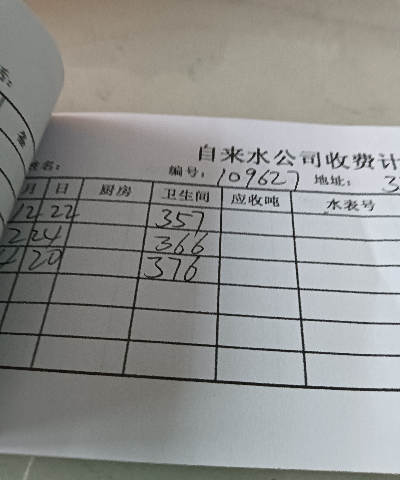 自来水公司收费计
姓名: 编号: 109627 地址: 3
月 日 厨房 卫生间 应收吨 水表号
12 22 357
2 24 366
4 20 376